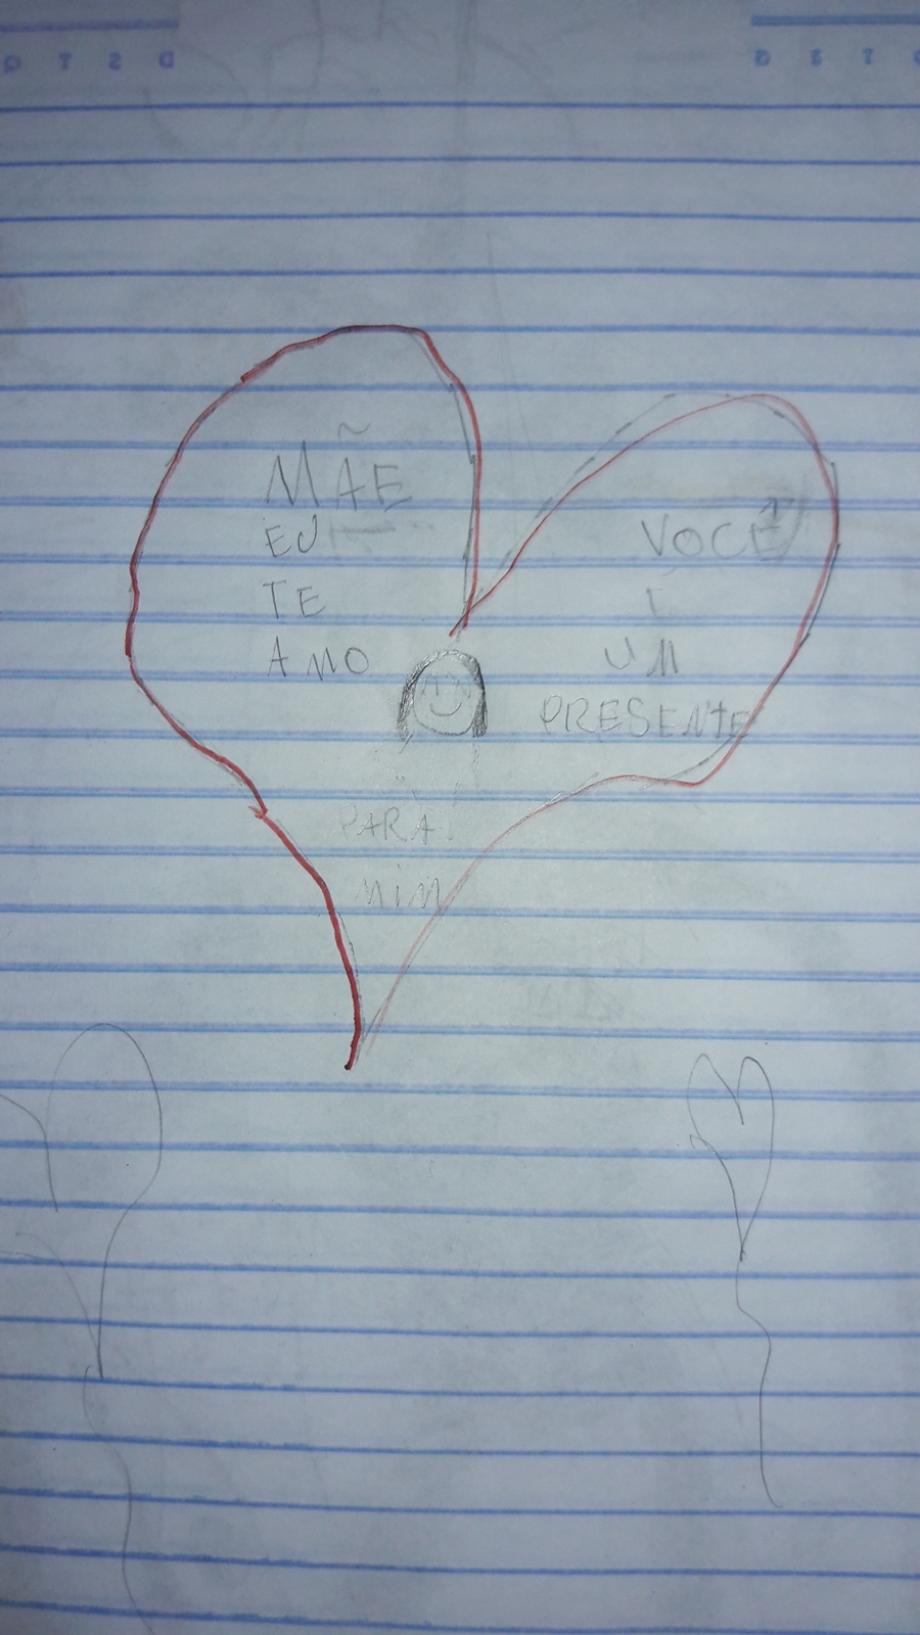 MÃE
EU
TE
AMO
VOCÊ
I
UM
PRESENTE
PARA
MIM